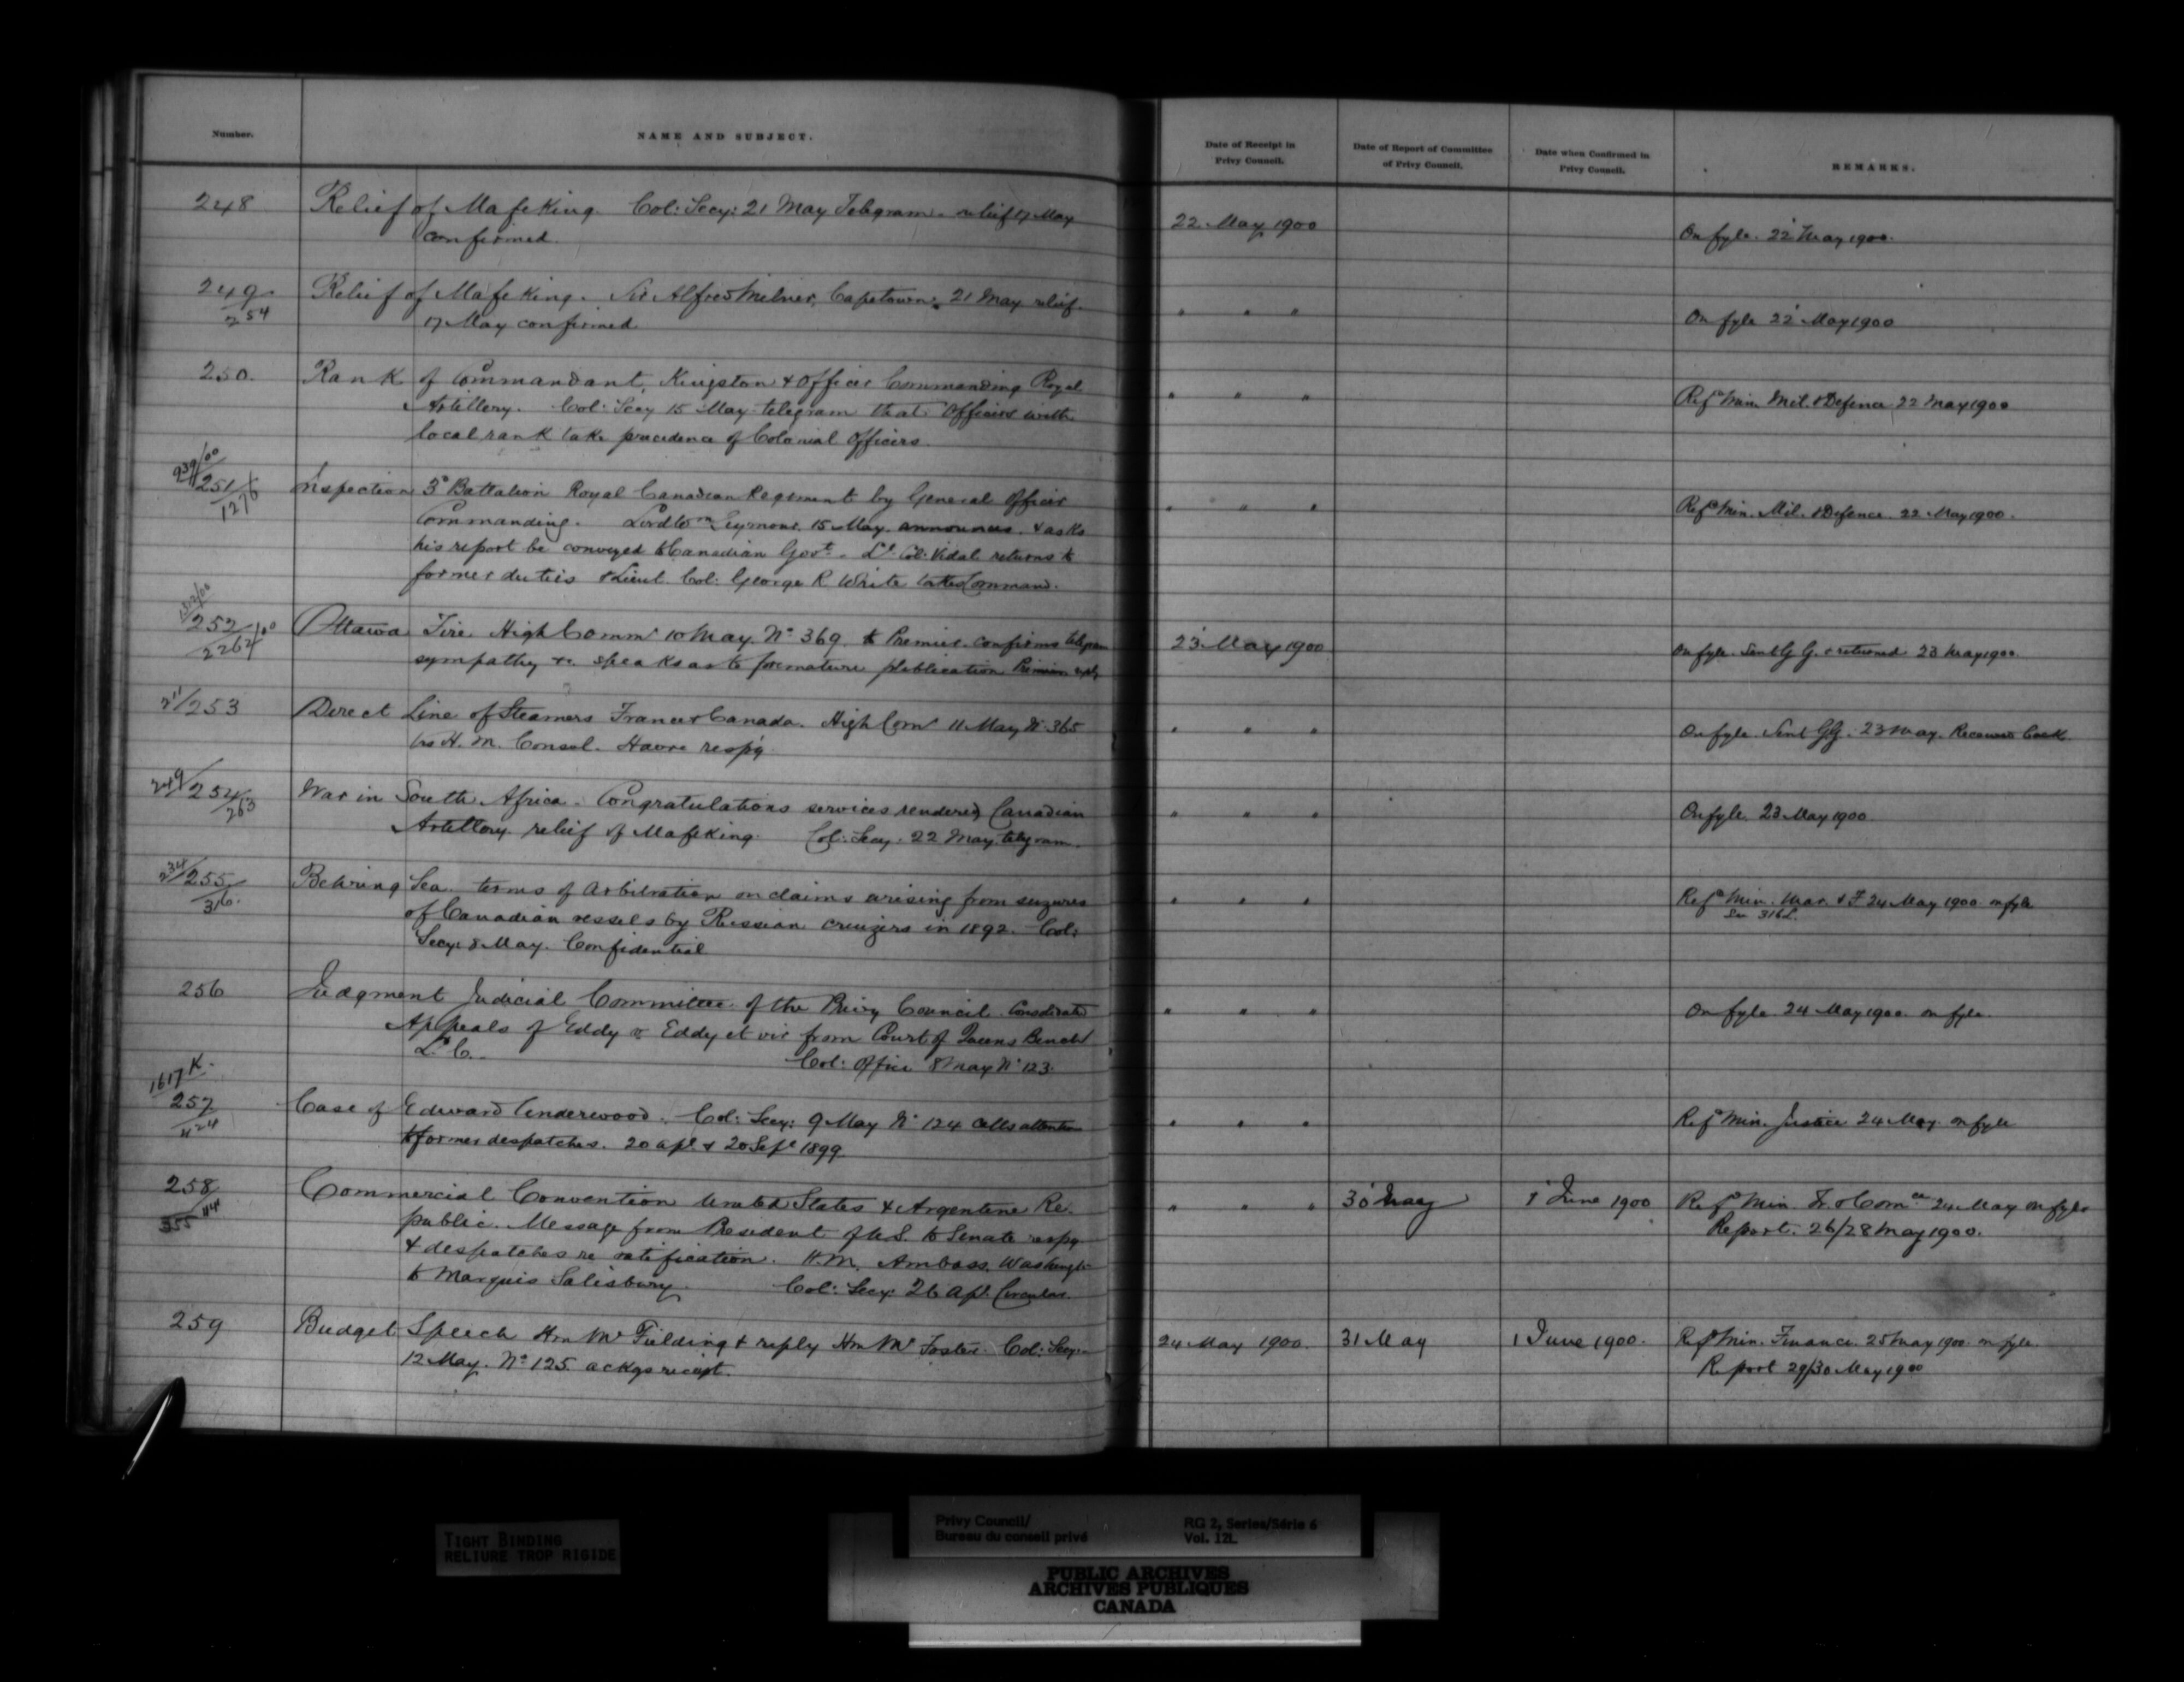 Number.
NAME AND SUBJECT.
Date of Receipt in
Privy Council.
Date of Report of Committee
of Privy Council.
Date when Confirmed in
Privy Council.
REMARKS.
248 Relief of Mafeking. Col: Secy: 21 May Telegram. relief 17 May
confirmed.
22. May 1900
On fyle. 22 May 1900.
249 Relief of Mafeking. Sir Alfred Milner, Capetown. 21 May relief.
254 17 May confirmed
" " "
On fyle 22 May 1900
250. Rank of Commandant, Kingston & Officer Commanding Royal
Artillery. Col: Secy 15 May telegram that Officers with
local rank take precedence of Colonial Officers.
" " "
Refd Min. Mil. & Defence 22 May 1900
939/00
251 Inspection 3d Battalion Royal Canadian Regiment by General Officer
1276 Commanding. Lord Wm Seymour. 15 May. announces. & asks
his report be conveyed to Canadian Govt. Lt. Col: Vidal returns to
former duties & Lieut. Col: George R. White takes Command.
" " "
Refd Min. Mil. & Defence. 22 May 1900.
1302/00
252 Ottawa Fire. High Commr 10 May. No 369. to Premier. confirms telegram
2262/00 sympathy &c. speaks as to premature publication Premiers reply
23 May 1900
On fyle. Sent G G. & returned 23 May 1900.
211/253 Direct Line of Steamers France & Canada. High Comr 11 May No 365
trs H. M. Consul. Havre respg.
" " "
On fyle. Sent GG. 23 May. Received back.
249/254 War in South Africa. Congratulations services rendered Canadian
263 Artillery. relief of Mafeking. Col: Secy: 22 May. telegram.
" " "
On fyle. 23 May 1900
234/255 Behring Sea. terms of arbitration on claims arising from seizures
316. of Canadian vessels by Russian cruizers in 1892. Col:
Secy: 8 May. Confidential
" " "
Refd Min. Mar. & F 24 May 1900. on fyle
See 316 L.
256 Judgment Judicial Committee of the Privy Council. Consolidated
Appeals of Eddy v. Eddy et vir from Court of Queens Bench
L. C. Col: Office 8 May No 123.
" " "
On fyle. 24 May 1900. on fyle.
1617 K.
257 Case of Edward Underwood. Col: Secy: 9 May No 124 calls attention
424 to former despatches. 20 Apl & 20 Sept 1899
" " "
Refd Min. Justice 24 May. on fyle
258 Commercial Convention United States & Argentine Re-
355 44 public. Message from President of U.S. to Senate respg
& despatches re ratification. H.M. Ambass. Washingtn
to Marquis Salisbury. Col: Secy: 26 Apl. Circular.
" " "
30 May
1 June 1900
Refd Min. Tr. & Comce 24 May on fyle
Report. 26/28 May 1900.
259 Budget Speech Hon Mr Fielding & reply Hon Mr Foster. Col: Secy:
12 May. No 125 ackgs receipt.
24 May 1900.
31 May
1 June 1900.
Refd Min. Finance. 25 May 1900. on fyle.
Report 29/30 May 1900
TIGHT BINDING
RELIURE TROP RIGIDE
Privy Council/
Bureau du conseil privé
RG 2, Series/Série 6
Vol. 12L
PUBLIC ARCHIVES
ARCHIVES PUBLIQUES
CANADA